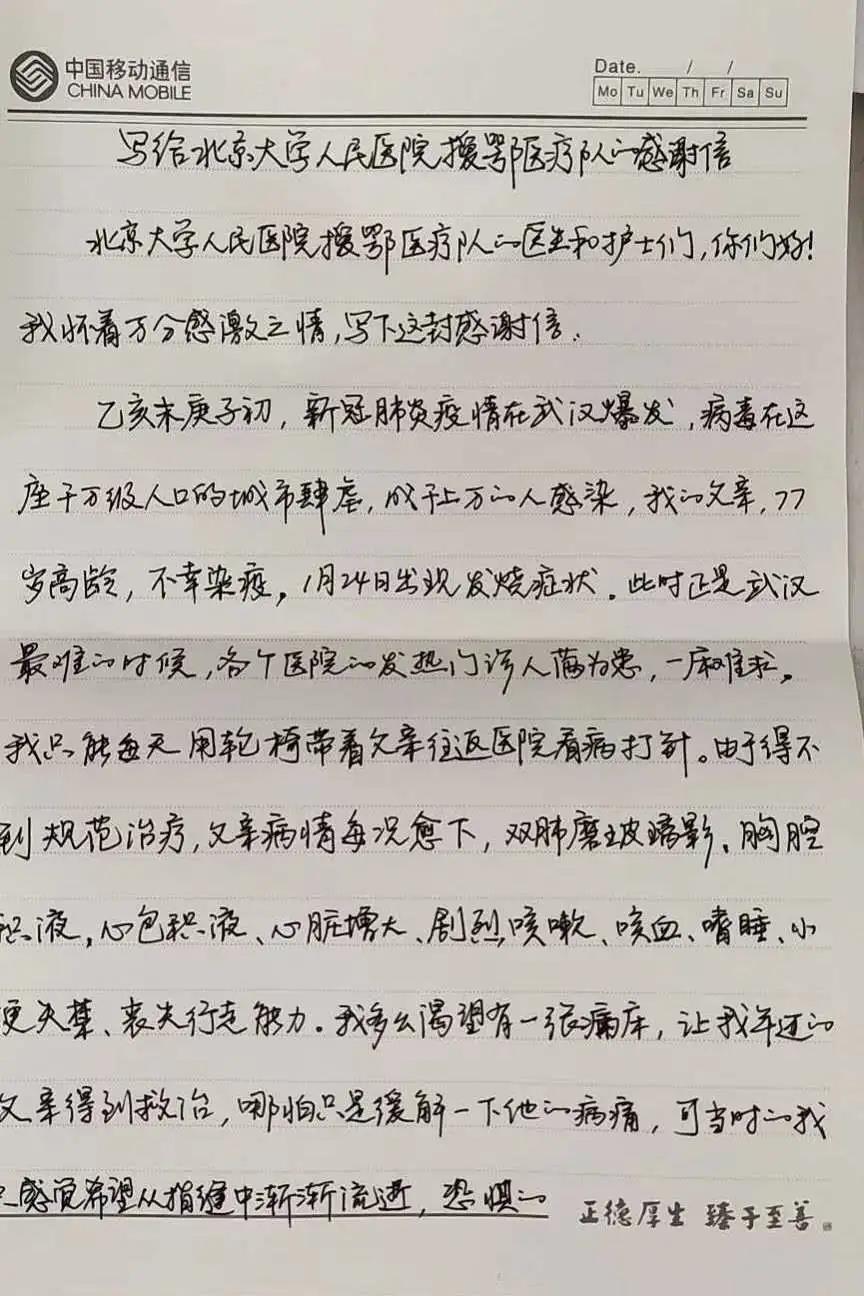 中国移动通信
CHINA MOBILE
Date. / /
Mo Tu We Th Fr Sa Su
写给北京大学人民医院援鄂医疗队的感谢信
北京大学人民医院援鄂医疗队的医生和护士们,你们好!
我怀着万分感激之情,写下这封感谢信.
乙亥末庚子初,新冠肺炎疫情在武汉爆发,病毒在这
座千万级人口的城市肆虐,成千上万的人感染,我的父亲,77
岁高龄,不幸染疫,1月24日出现发烧症状.此时正是武汉
最难的时候,各个医院的发热门诊人满为患,一床难求。
我只能每天用轮椅带着父亲往返医院看病打针。由于得不
到规范治疗,父亲病情每况愈下,双肺磨玻璃影、胸腔
积液,心包积液、心脏增大、剧烈咳嗽、咳血、嗜睡、小
便失禁、丧失行走能力。我多么渴望有一张病床,让我年迈的
父亲得到救治,哪怕只是缓解一下他的病痛,可当时的我
只感觉希望从指缝中渐渐流逝,恐惧的
正德厚生 臻于至善